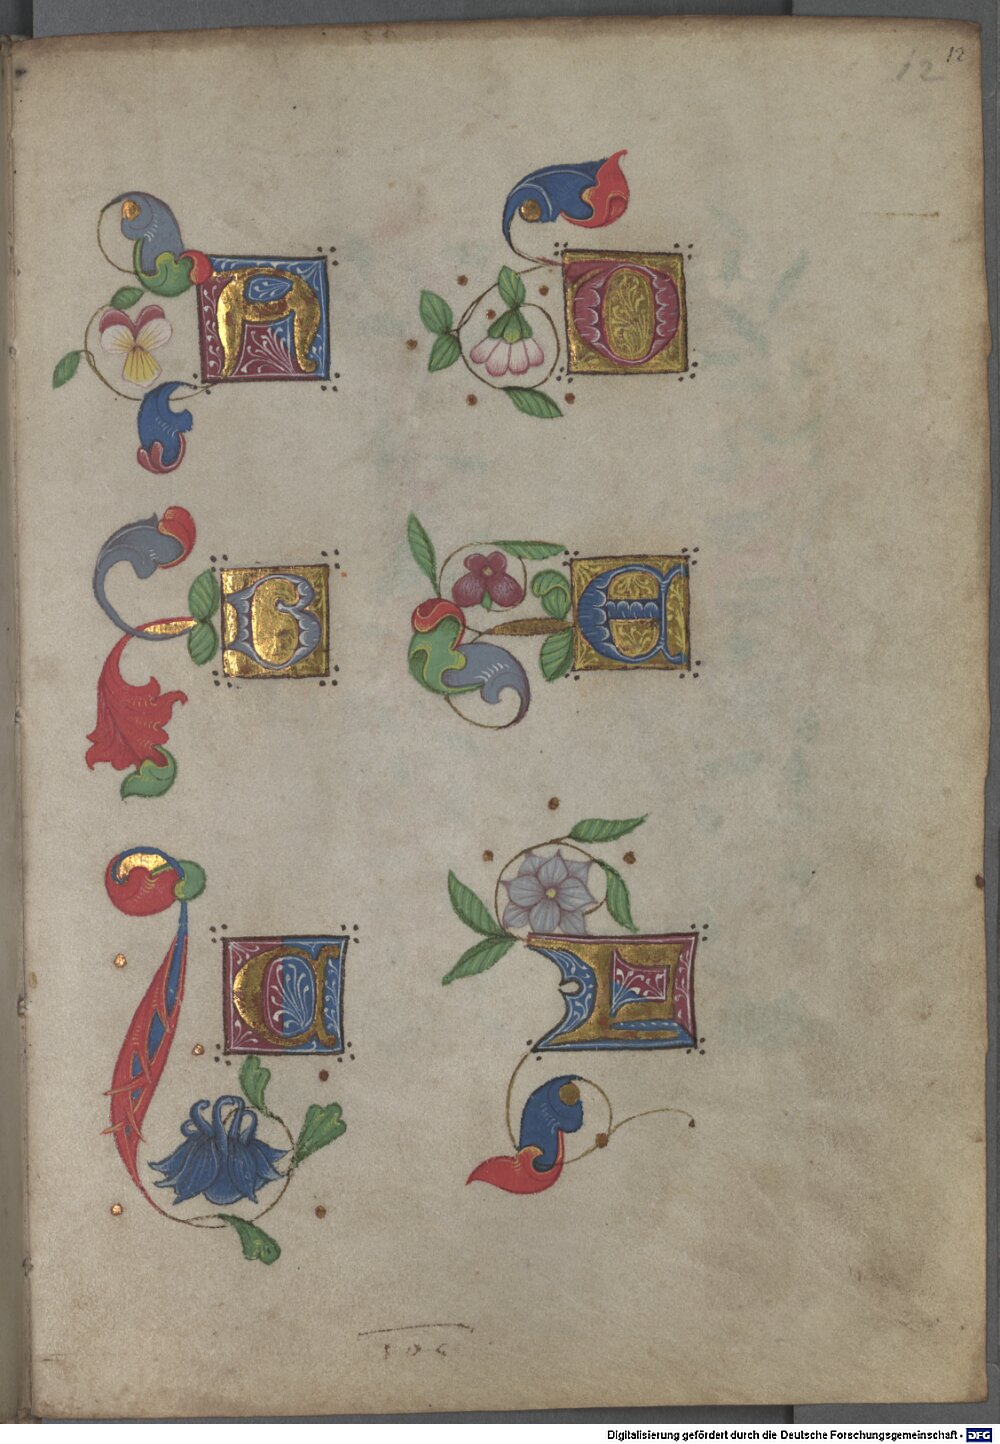 12
12
A D
B E
C F
Digitalisierung gefördert durch die Deutsche Forschungsgemeinschaft - DFG